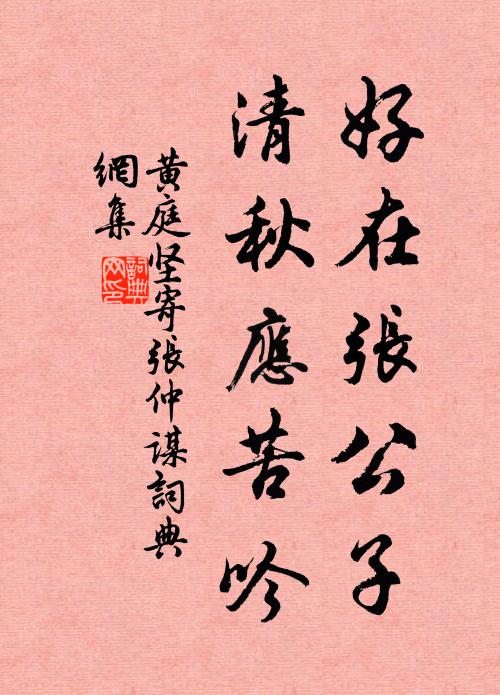 好在張公子
清秋應苦吟
黄庭坚寄張仲谋詞典
網集
詞典网印